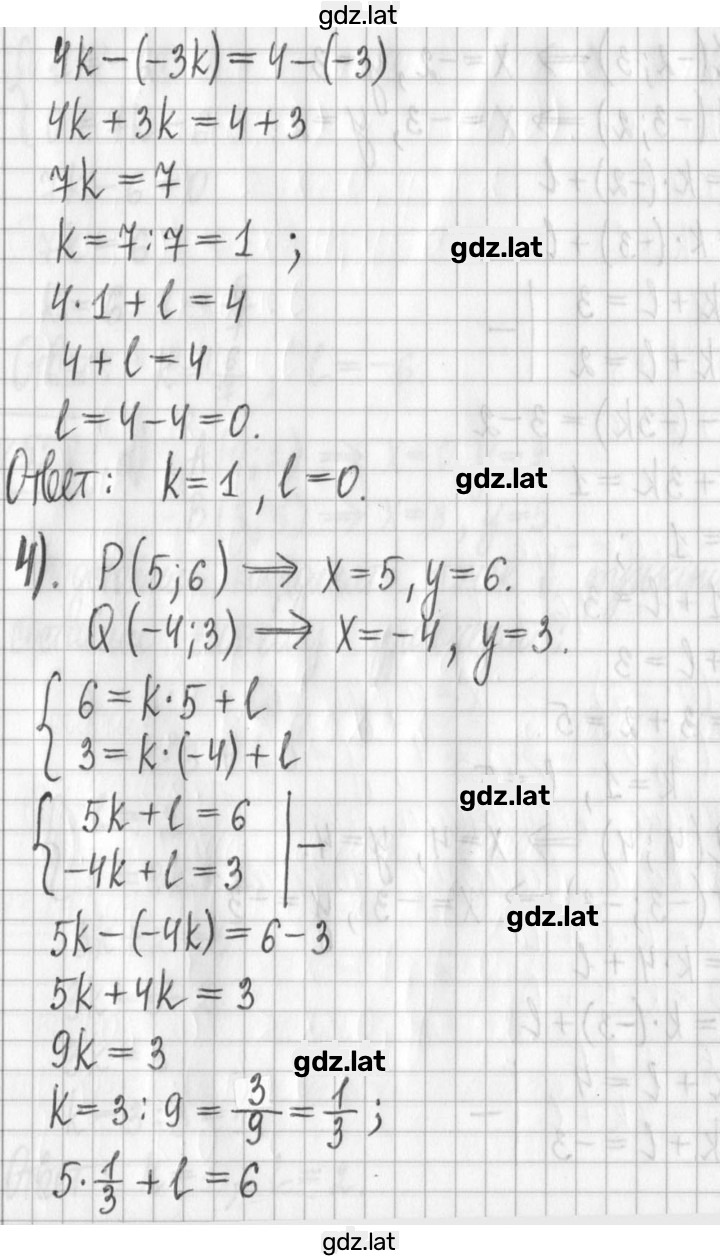 gdz.lat
4k-(-3k)=4-(-3)
4k+3k=4+3
7k=7
k=7:7=1 ;
gdz.lat
4·1+l=4
4+l=4
l=4-4=0.
Ответ: k=1, l=0.
gdz.lat
4). P(5;6) ⟹ x=5, y=6.
Q(-4;3) ⟹ x=-4, y=3.
{ 6=k·5+l
3=k·(-4)+l
gdz.lat
{ 5k+l=6 | −
-4k+l=3
gdz.lat
5k-(-4k)=6-3
5k+4k=3
9k=3
gdz.lat
k=3:9=3/9=1/3;
5·1/3+l=6
gdz.lat